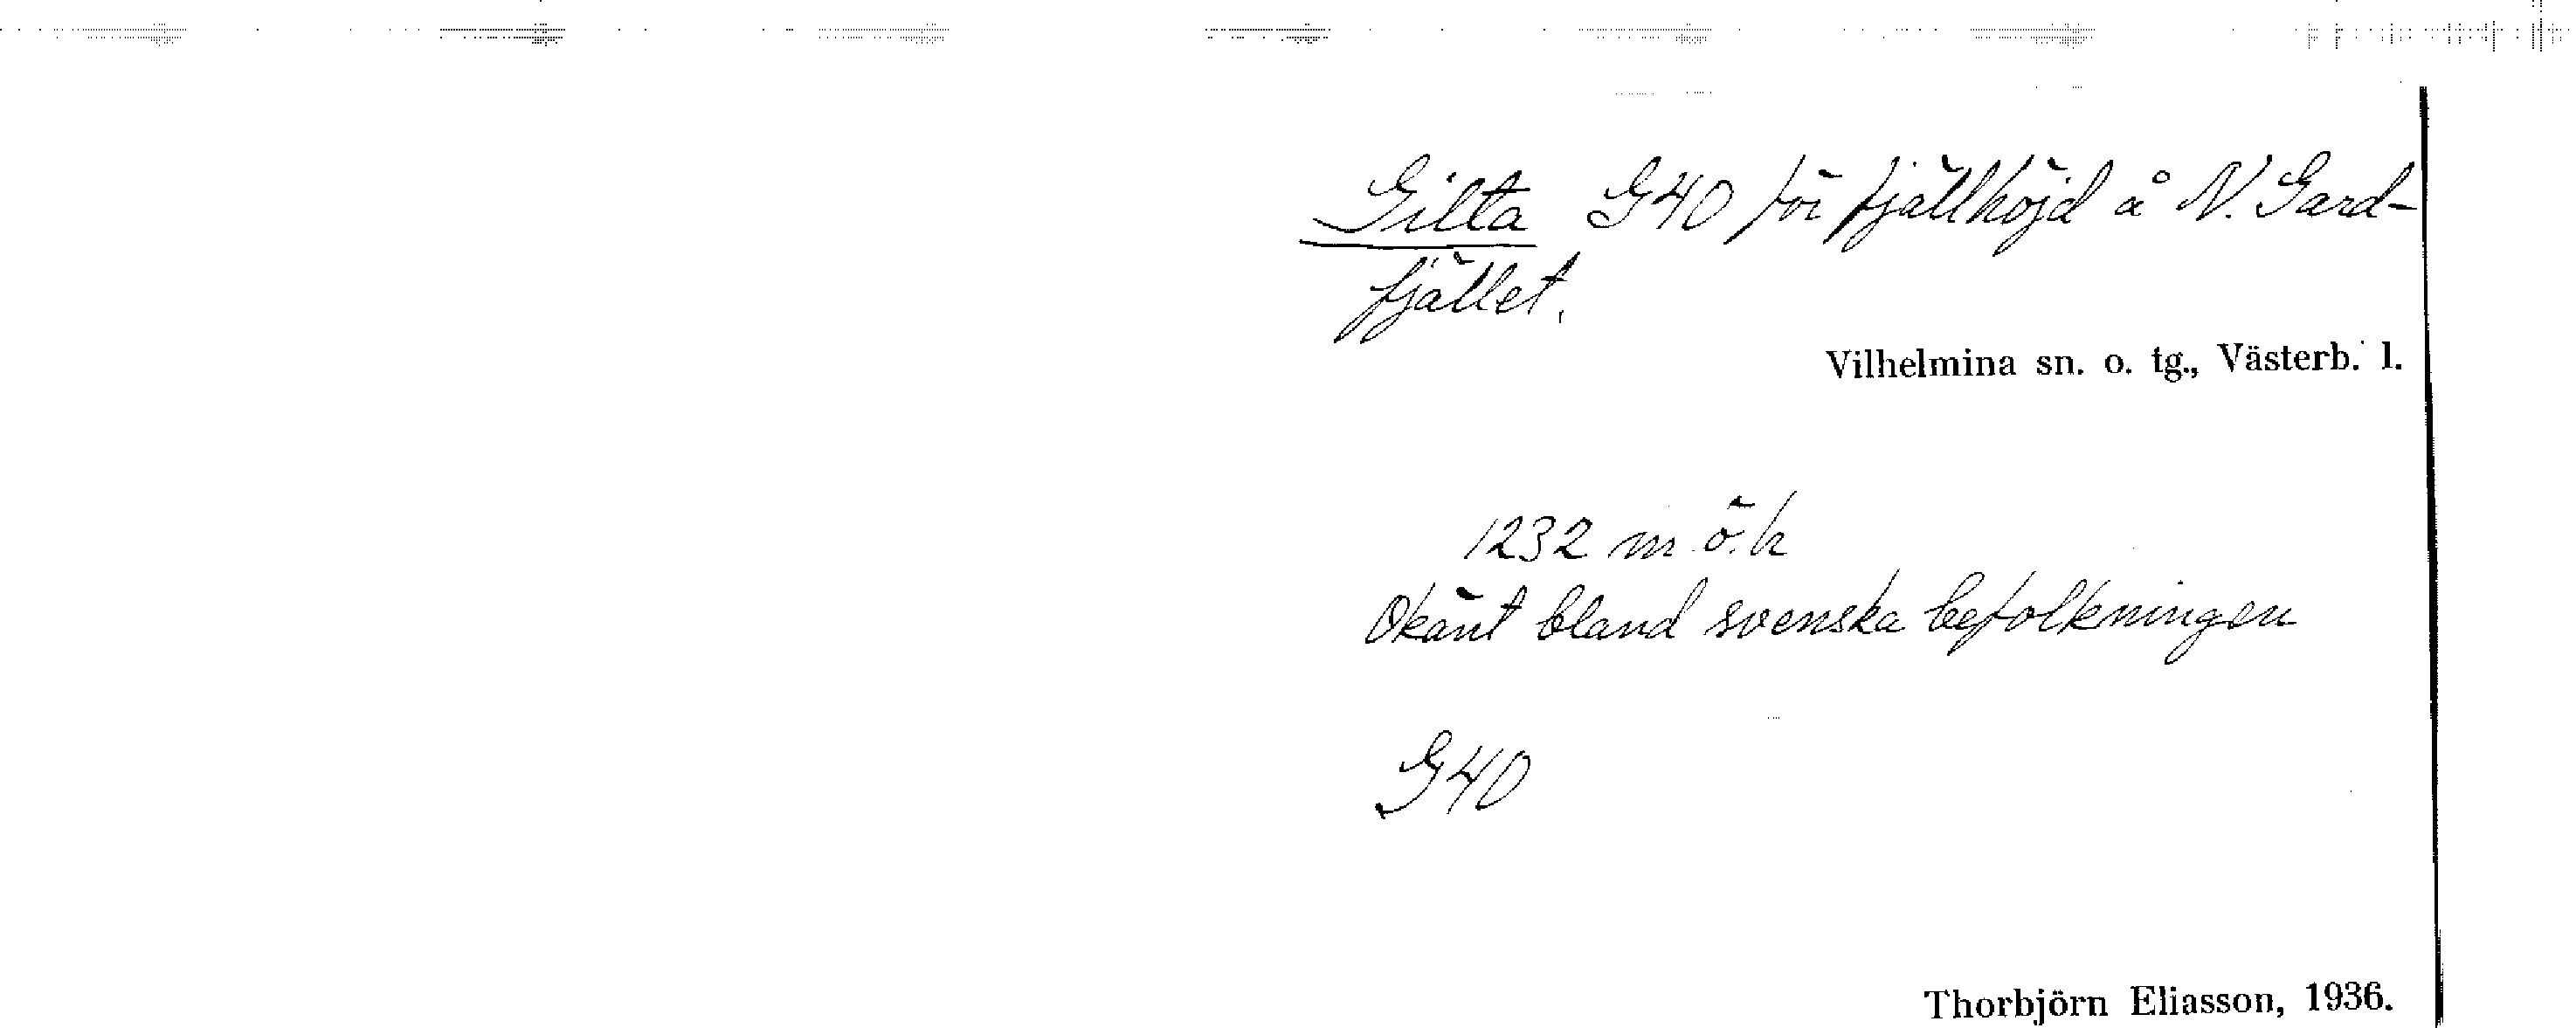 Gilta G40 för fjällhöjd å N. Gard-
fjället.
Vilhelmina sn. o. tg., Västerb. l.
1232 m ö. h
Okänt bland svenska befolkningen
G40
Thorbjörn Eliasson, 1936.